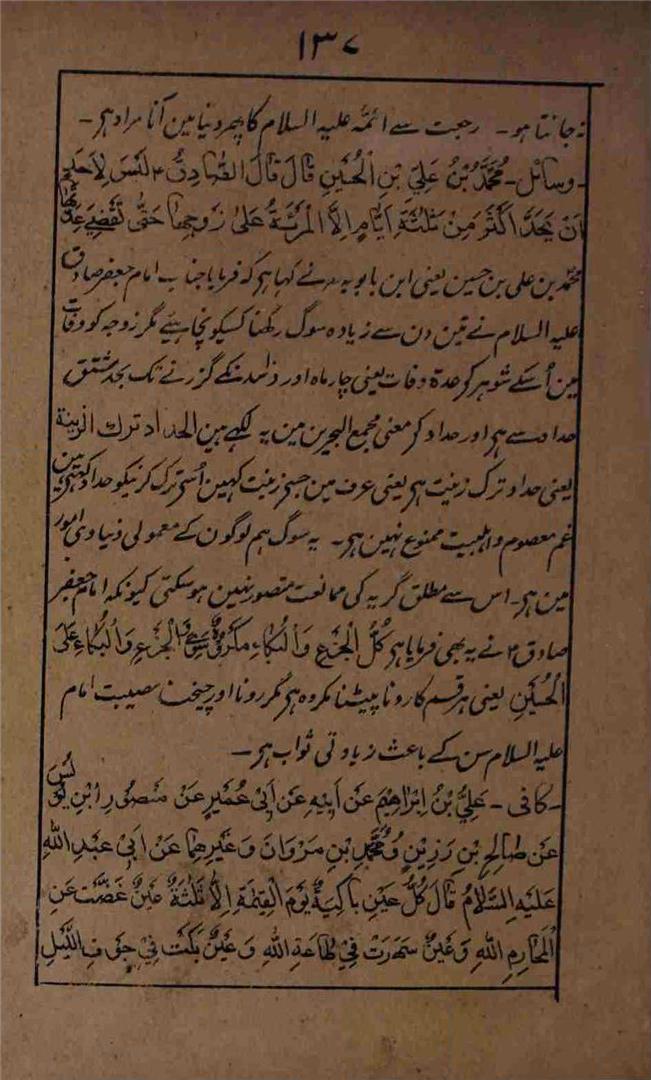 ۱۳۷
نہ جانتا ہو۔ رجعت سے ائمہ علیہ السلام کا پھر دنیا مین آنا مراد ہر۔
۔وسائل۔ مُحَمَّدُ بْنُ عَلِيِّ بْنِ الْحُسَيْنِ قَالَ قَالَ الصَّادِقُ ۴ لَيْسَ لِاَحَدٍ
اَنْ يَحُدَّ اَكْثَرَ مِنْ ثَلٰثَةِ اَيَّامٍ اِلَّا الْمَرْئَةُ عَلٰى زَوْجِهَا حَتّٰى تَقْضِيَ عِدَّتَهَا
محمد بن علی بن حسین یعنی ابن بابویہ نے کہا ہر کہ فرمایا جناب امام جعفر صادق
علیہ السلام نے تین دن سے زیادہ سوگ رکھنا کسیکو نچاہیئے مگر زوجہ کو وفات
مین اُسکے شوہر کو عدۃ وفات یعنی چار ماہ اور دس دنکے گزرنے تک یحد مشتق
حداد سے ہر اور حداد کر معنی مجمع البحرین مین یہ لکھے ہین الحداد ترك الزينة
یعنی حداد ترک زینت ہر یعنی عرف مین جسے زینت کہین اُسے ترک کرنیکو حداد کہتے ہین
غم معصوم و اہلبیت ممنوع نہین ہر۔ یہ سوگ ہم لوگون کے معمولی دنیاوی امور
مین ہر۔ اس سے مطلق گریہ کی ممانعت متصور نہین ہو سکتی کیونکہ امام جعفر
صادق ۴ نے یہ بھی فرمایا ہر كُلُّ الْجَزَعِ وَالْبُكَاءِ مَكْرُوْهٌ سِوَى الْجَزَعِ وَالْبُكَاءِ عَلَى
الْحُسَيْنِ یعنی ہر قسم کا رونا پیٹنا مکروہ ہر مگر رونا اور چیخنا مصیبت امام
علیہ السلام سن کے باعث زیادتی ثواب ہر۔
۔کافی۔ عَلِيُّ بْنُ اِبْرَاهِيْمَ عَنْ اَبِيْهِ عَنْ اَبِيْ عُمَيْرٍ عَنْ مَنْصُوْرِ ابْنِ يُوْنُسَ
عَنْ صَالِحِ بْنِ رَزِيْنٍ وَمُحَمَّدِ بْنِ مَرْوَانَ وَغَيْرِهِمَا عَنْ اَبِيْ عَبْدِ اللّٰهِ
عَلَيْهِ السَّلَامُ قَالَ كُلُّ عَيْنٍ بَاكِيَةٌ يَوْمَ الْقِيٰمَةِ اِلَّا ثَلٰثَةٌ عَيْنٌ غَضَّتْ عَنِ
الْمَحَارِمِ اللّٰهِ وَعَيْنٌ سَهَرَتْ فِيْ طَاعَةِ اللّٰهِ وَعَيْنٌ بَكَتْ فِيْ جَوْفِ اللَّيْلِ